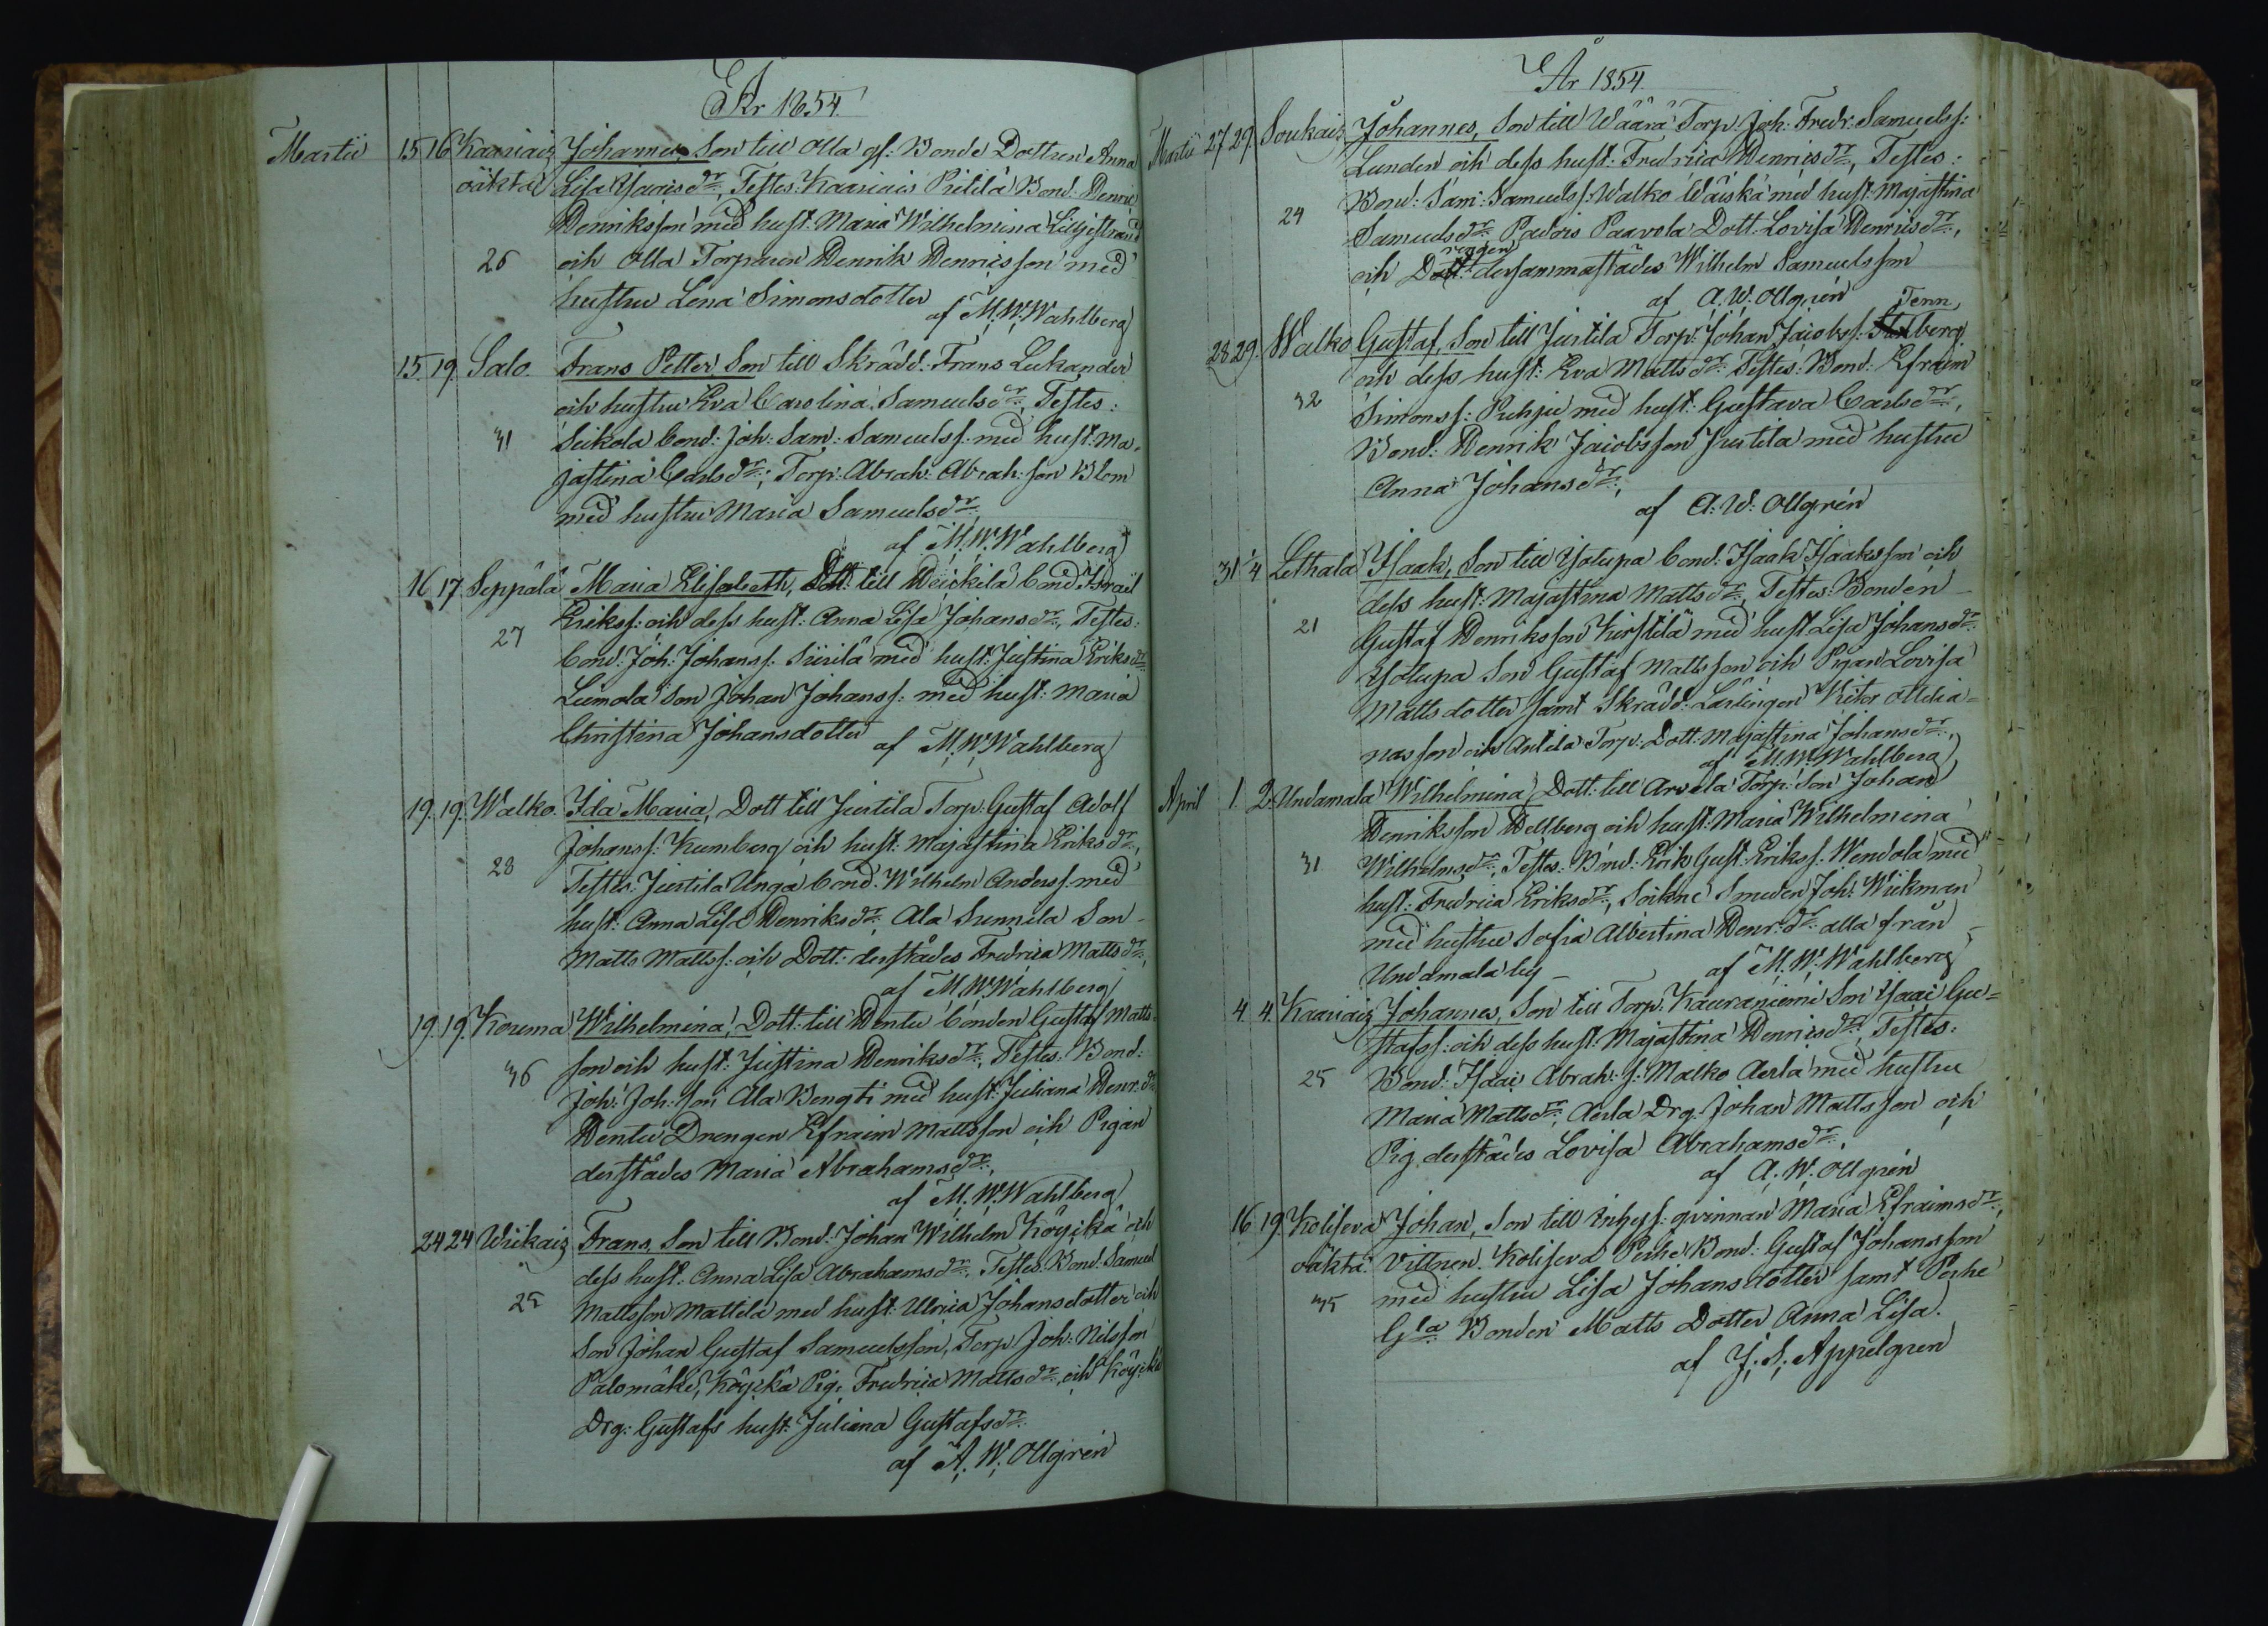 År 1854.
Martii 15 16 Kaariais Johannes, Son till Olla gl: Bonde Dottren Anna
oäkta Lisa Isacsdr, Testes: Kaariais Pietilä Bond: Henric
Henriksson med hust. Maria Wilhelmina Liljestrand
26 och Olla Torparen Henrik Henricsson med
hustru Lena Simonsdotter
af M. W. Wahlberg
15. 19. Salo. Frans Petter, Son till Skrädd: Frans Lukander
och hustru Eva Carolina Samuelsdr, Testes:
31 Seikola bond: Joh: Sam: Samuelss. med hust. Ma-
jastina Carlsdr; Torp: Abrah: Abrah:son Blom
med hustru Maria Samuelsdr
af M. W. Wahlberg
16 17 Seppälä Maria Elisabeth, Dott: till Heickilä bond Israel
Erikss: och dess hust: Anna Lisa Johansdr, Testes:
27 bond: Joh: Johanss. Siirilä med hust: Justina Eriksdr
Liimola son Johan Johanss: med hust: Maria
Christina Johansdotter
af M. W. Wahlberg
19. 19. Walko. Ida Maria, Dott till Juntila Torp: Gustaf Adolf
Johanss: Kumberg och hust: Majastina Eriksdr,
28 Testes: Juntila Unga bond: Wilhelm Anderss. med
hust: Anna Lisa Henriksdr, Ala Sunnila Son
Matts Mattss: och Dott: derstädes Fredrica Mattsdr,
af M. W. Wahlberg
19. 19. Kouma Wilhelmina, Dott: till Hentu bonden Gustaf Matts-
son och hust: Justina Henriksdr, Testes: Bond:
36 Joh: Joh:son Ala Bengti med hust: Juliana Henr:dr
Hentu Drengen Efraim Mattsson och Pigan
derstädes Maria Abrahamsdr,
af M. W. Wahlberg
24 24 Wiikais Frans, Son till Bond: Johan Wilhelm Köyckä och
dess hust: Anna Lisa Abrahamsdr, Testes: Bond: Samuel
25 Mattsson Mattila med hust: Ulrica Johansdotter och
Son Johan Gustaf Samuelsson, Torp: Joh: Nilsson
Palomäki, Köyckä Pig: Fredrica Mattsdr, och Köyckä
Drg: Gustafs hust: Juliana Gustafsdr
af A. W. Ollgrén
År 1854.
Martii 27 29. Soukais Johannes, Son till Wäärä Torp: Joh: Fredr: Samuelss:
Lunden och dess hust: Fredrica Henricsdr, Testes:
24 Bond: Sam: Samuelss: Walko Wäiskä med hust: Majastina
Samuelsdr, Padois Paavola Dott: Lovisa Henricsdr,
och drengen dersammastädes Wilhelm Samuelsson
af A. W. Ollgrén
28 29. Walko Gustaf, Son till Juntila Torp: Johan Jacobss: Tennberg
och dess hust: Eva Mattsdr Testes: Bond: Efraim
32 Simonss: Puhju med hust: Gustava Carlsdr,
Bond: Henrik Jacobsson Juntila med hustru
Anna Johansdr,
af A. W. Ollgrén
31 4 Lethala Isaak, Son till Isotupa bond: Isaak Isaaksson och
dess hust: Majastina Mattsdr, Testes: Bonden
21 Gustaf Henriksson Kirstilä med hust Lisa Johansdr
Isotupa Son Gustaf Mattsson och Pigan Lovisa
Mattsdotter samt Skrädd: Lärlingen Kitor Ottilia-
nas son och Anttila Torp: Dott: Majastina Johansdr,
af M. W. Wahlberg
April 1. 2. Undamala Wilhelmina, Dott: till Arvela Torp: Son Johan
Henriksson Hellberg och hust: Maria Wilhelmina
31 Wilhelmsdr, Testes: Bond: Erik Gust: Erikss. Wendola med
hust: Fredrica Eriksdr, Sockne Smeden Joh: Wickman
med hustru Sofia Albertina Henr:dr alla från
Undamala by
af M. W. Wahlberg
4. 4. Kaariais Johannes, Son till Torp: Kauraniemi Son Isaac Gu-
stafss: och dess hust: Majastina Henricsdr, Testes:
25 Bond: Isaac Abrah: s: Malko Aerla med hustru
Maria Mattsdr, Aerla Drg: Johan Mattsson och
Pig: derstädes Lovisa Abrahamsdr,
af A. W. Ollgrén
16 19. Koliseva Johan, Son till Inhyss: qvinnan Maria Efraimsdr,
oäkta. Vittnen. Koliseva Perhe Bond: Gustaf Johansson
35 med hustru Lisa Johansdotter samt Perhe
Gla Bonden Matts Dotter Anna Lisa.
af J. S. Appelgren